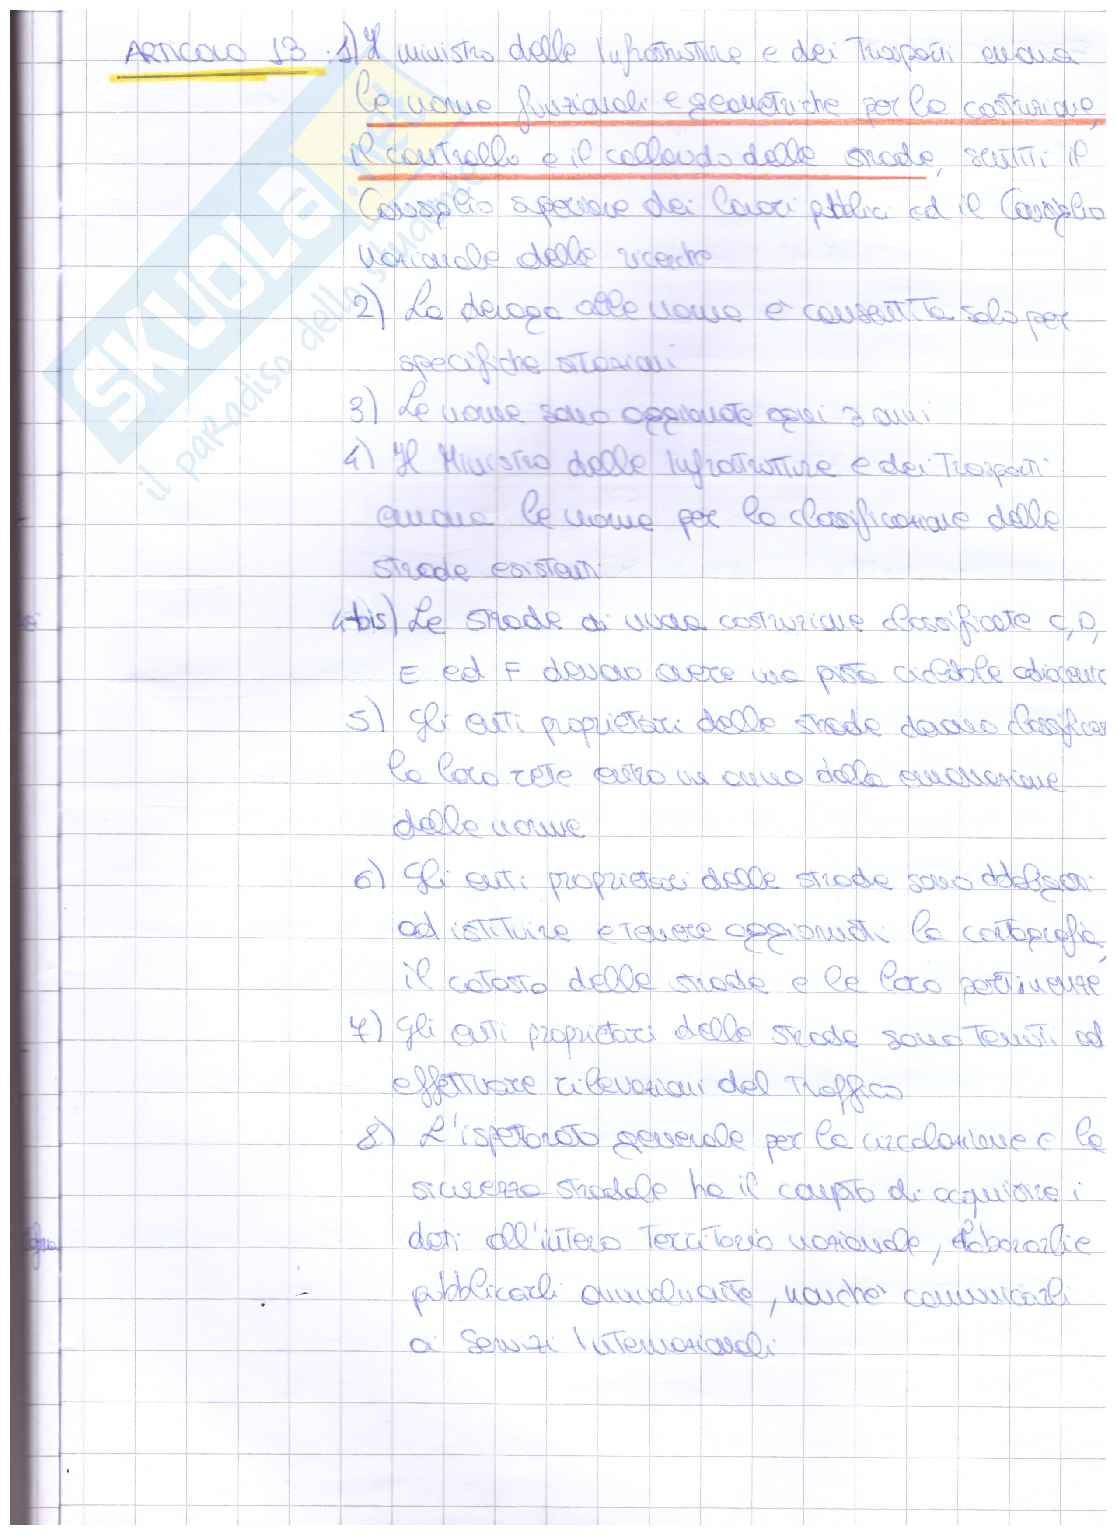 ARTICOLO 13 . 1) Il ministro delle Infrastrutture e dei Trasporti emana
le norme funzionali e geometriche per la costruzione,
il controllo e il collaudo delle strade, sentiti il
Consiglio superiore dei lavori pubblici ed il Consiglio
nazionale delle ricerche
2) La deroga alle norme è consentita solo per
specifiche situazioni
3) Le norme sono aggiornate ogni 3 anni
4) Il Ministro delle Infrastrutture e dei Trasporti
emana le norme per la classificazione delle
strade esistenti
4-bis) Le strade di nuova costruzione classificate C, D,
E ed F devono avere una pista ciclabile adiacente
5) Gli enti proprietari delle strade devono classificar
la loro rete entro un anno dalla emanazione
delle norme
6) Gli enti proprietari delle strade sono obbligati
ad istituire e tenere aggiornati la cartografia,
il catasto delle strade e le loro pertinenze
7) Gli enti proprietari delle strade sono tenuti ad
effettuare rilevazioni del traffico
8) L'ispettorato generale per la circolazione e la
sicurezza stradale ha il compito di acquisire i
dati all'intero territorio nazionale, elaborarli e
pubblicarli annualmente, nonché comunicarli
ai Servizi Internazionali
SKUOLA.net
il paradiso dello studente